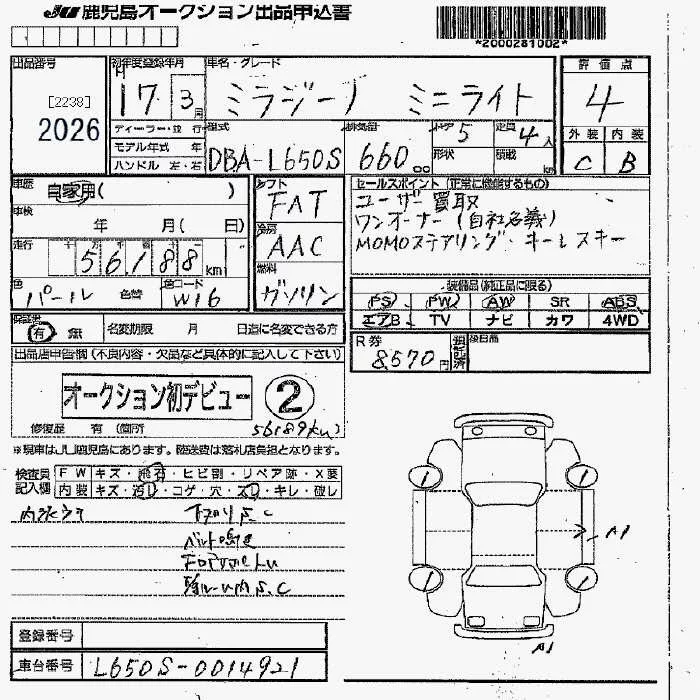 JU 鹿児島オークション出品申込書
*2000281002*
出品番号
[2238]
2026
初年度登録年月
H
17 3月
車名・グレード
ミラジーノ ミニライト
評価点
4
ディーラー・並 行
モデル年式 年
ハンドル 左・右
型式
DBA-L650S
排気量
660 cc
ドア 5
形状
定員 4人
積載
外装 内装
C B
車歴
自家用( )
車検
年 月( 日)
走行
56188km
色
パール 色替
色コード
W16
シフト
FAT
冷房
AAC
燃料
ガソリン
セールスポイント (正常に機能するもの)
ユーザー買取
ワンオーナー(自社名義)
MOMOステアリング・キーレスキー
装備品(純正品に限る)
PS PW AW SR ABS
エアB TV ナビ カワ 4WD
保証書
有 無
名変期限 月 日迄に名変できる方
R券
8570円
預託済
出品店申告欄(不良内容・欠品など具体的に記入して下さい)
オークション初デビュー ②
修復歴 有(箇所
56189km)
*現車はJU鹿児島にあります。陸送費は落札店負担となります。
検査員
記入欄
FW キズ・飛石・ヒビ割・リペア跡・X要
内装 キズ・汚れ・コゲ・穴・スレ・キレ・破レ
下回りS.C
ベルト鳴き
A1
A1
登録番号
車台番号 L650S-0014921